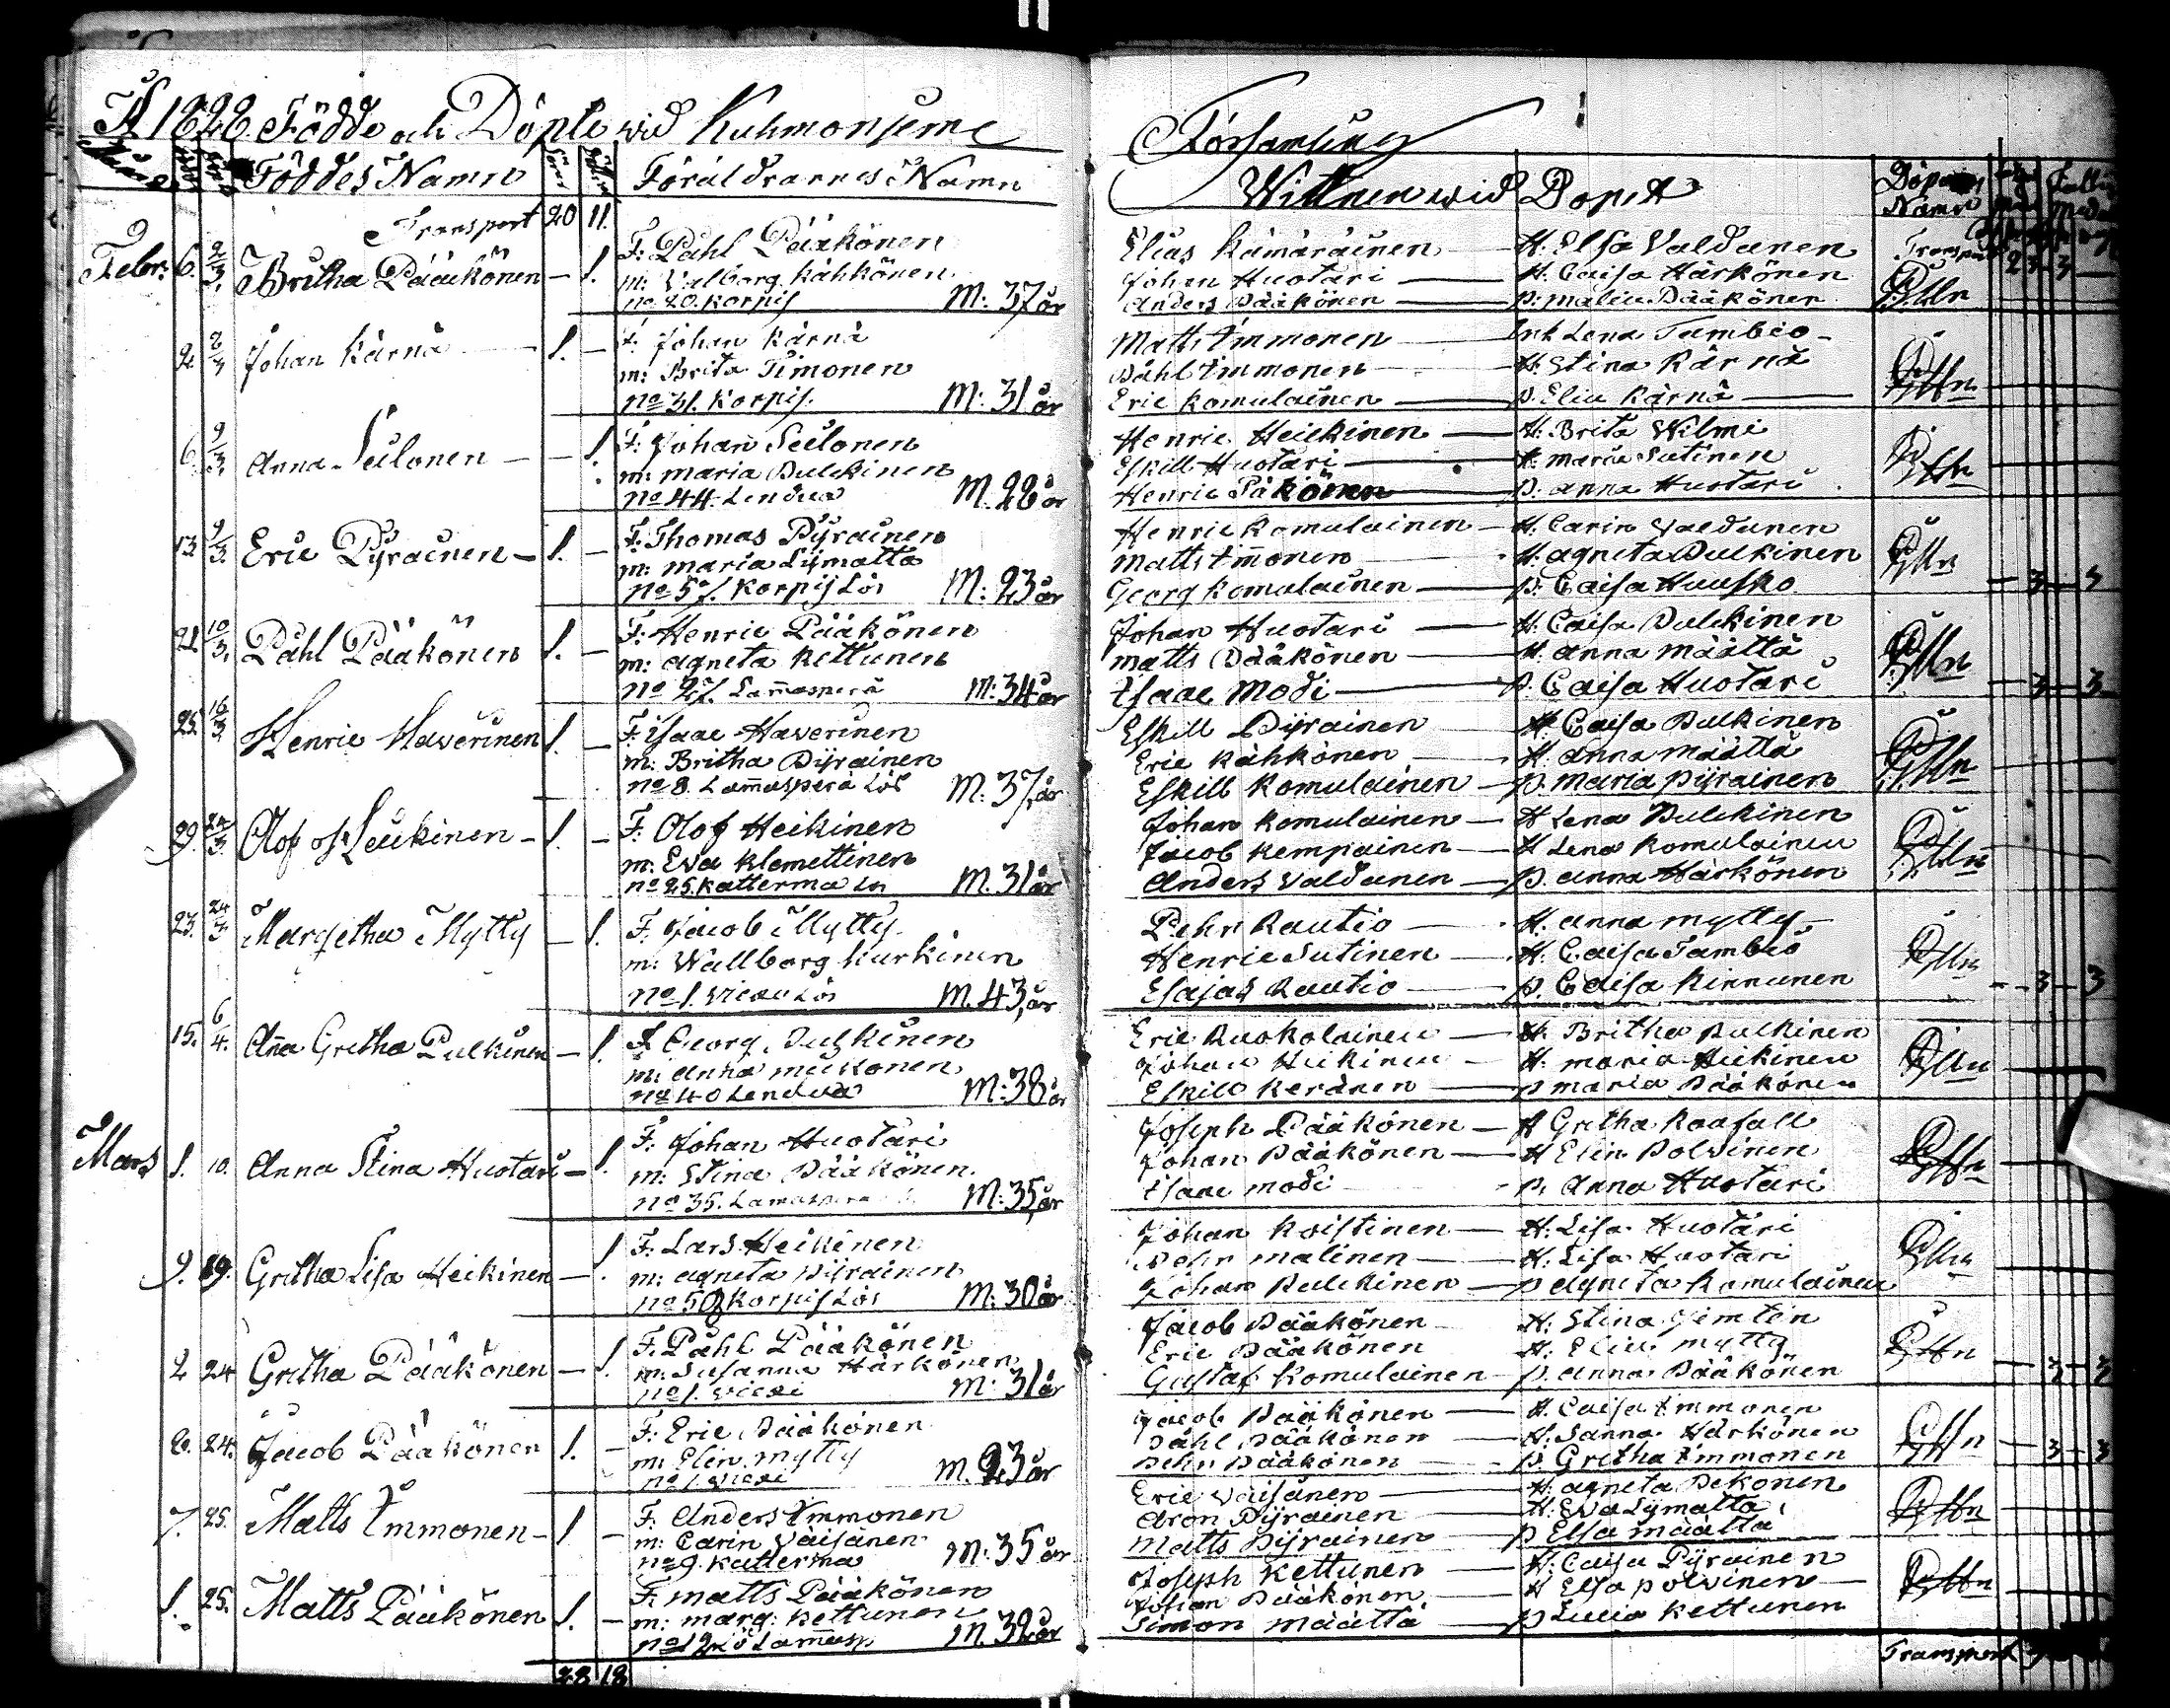 Å 1828 Födde och Döpte wid Kuhmoniemi
Församling
Föddes Namn Föräldrarnes Namn
Wittnen wid Dopet
Döparens Namn
Transport 20 11.
Transport 23 3
Febr: 6. 2/3. Britha Pääkönen – 1.
F: Påhl Pääkönen
m: Walborg Kähkönen
no 20. Korpij M: 37 år
Elias Kämäräinen – H. Elsa Valdanen
Johan Huotari – H. Caisa Härkönen
Anders Pääkönen – p: Malin Pääkönen
2. 2/3 Johan Kärnä 1. –
F: Johan Kärnä
m: Brita Timonen
no 31. Korpij. M: 31 år
Matts Immonen – Enk Lena Tambio
Påhl Immonen – H. Stina Kärnä
Eric Komulainen – p. Elin Kärnä
6. 9/3 Anna Seilonen – 1.
F: Johan Seilonen
m: Maria Pulckinen
no 44. Lendua M. 28 år
Henric Heickinen – H. Brita Wilmi
Eskill Huotari – H. Maria Sutinen
Henric – p: Anna Huotari
13. 9/3. Eric Pyräinen – 1. –
F: Thomas Pyräinen
m: Maria Lymatta
no 57. Korpij Lös M: 23 år
Henric Komulainen – H. Carin Valdanen
Matts Immonen – H. Agneta Pulkinen
Georg Komulainen – p: Caisa Huusko – 3 – 3
21. 10/3. Påhl Pääkönen 1. –
F: Henric Pääkönen
m: Agneta Kettunen
no 27. Lammasperä M: 34 år
Johan Huotari – H. Caisa Pulckinen
Matts Pääkönen – H. Anna Määttä
Isaac Modi – p. Caisa Huotari – 3 – 3
25. 16/3 Henric Hawerinen 1. –
F: Isaac Hawerinen
m: Britha Pyräinen
no 8. Lammasperä Lös M: 37, år
Eskill Pyräinen – H. Caisa Pulkinen
Eric Kähkönen – H. Anna Määttä
Eskill Komulainen – p. Maria Pyräinen
29. 24/3. Olof Heikinen – 1. –
F: Olof Heikinen
m: Eva Klemettinen
no 25. Katterma Lös M. 31 år
Johan Komulainen – H Lena Pulckinen
Jacob Kempainen – H Lena Komulainen
Anders Valdanen – p. Anna Härkönen
23. 24/3 Margetha Mytty – 1.
F. Jacob Mytty
m: Wallborg Kurkinen
no 1. Viexi Lös M. 43, år
Pehr Rautio – H. Anna Mytty
Henric Sutinen – H. Caisa Tambio
Esajas Rautio – p. Caisa Kinnunen – 3 – 3
15. 6/4. Aña Gretha Pulkinen – 1.
F Georg Pulkinen
m: Anna
no 40 Lendua M: 38 år
Eric Ruokolainen – H. Britha Pulkinen
Johan Heikinen – H. Maria Heikinen
Eskill Keränen – p Maria Pääkönen
Mars 1. 10. Anna Stina Huotari – 1.
F: Johan Huotari
m: Stina Pääkönen
no 35. Lammasperä M: 35, år
Joseph Pääkönen – H Gretha Kaasall
Johan Pääkönen – H Elin Polvinen
Isaac Modi – p. Anna Huotari
9. 19. Gretha Lisa Heikinen – 1.
F: Lars Heikinen
m: Agneta Pyräinen
no 50 Korpij Lös M: 30 år
Johan Koistinen – H: Lisa Huotari
Pehr Malinen – H: Lisa Huotari
Johan Pulckinen – p Agneta Komulainen
2 24 Gretha Pääkönen – 1.
F. Påhl Pääkönen
m: Susanna Härkönen
no 1. Viexi M: 31 år
Jacob Pääkönen H: Stina
Eric Pääkönen H. Elin Mytty
Gustaf Komulainen – p. Anna Pääkönen – 3 – 3
2. 24. Jacob Pääkönen 1. –
F: Eric Pääkönen
m: Elin Mytty
no 1. Viexi M. 23 år
Jacob Pääkönen – H. Caisa Immonen
Påhl Pääkönen – H: Sanna Härkönen
Pehr Pääkönen – p. Gretha Immonen – 3 – 3
7. 25. Matts Immonen – 1 –
F: Anders Immonen
m: Carin Väisänen
no 9. Katterma M: 35 år
Eric Väisänen – H. Agneta Pekonen
Aron Pyräinen – H. Eva Lymatta
Matts Pyräinen – p Elsa Määttä
1. 25. Matts Pääkönen 1. –
F: Matts Pääkönen
m: Marg: Kettunen
M. 32 år
Joseph Kettunen – H. Caisa Pyräinen
Johan Pääkönen – H Elsa Polvinen
Simon Määttä – p Lucia Kettunen
28 18
Transport